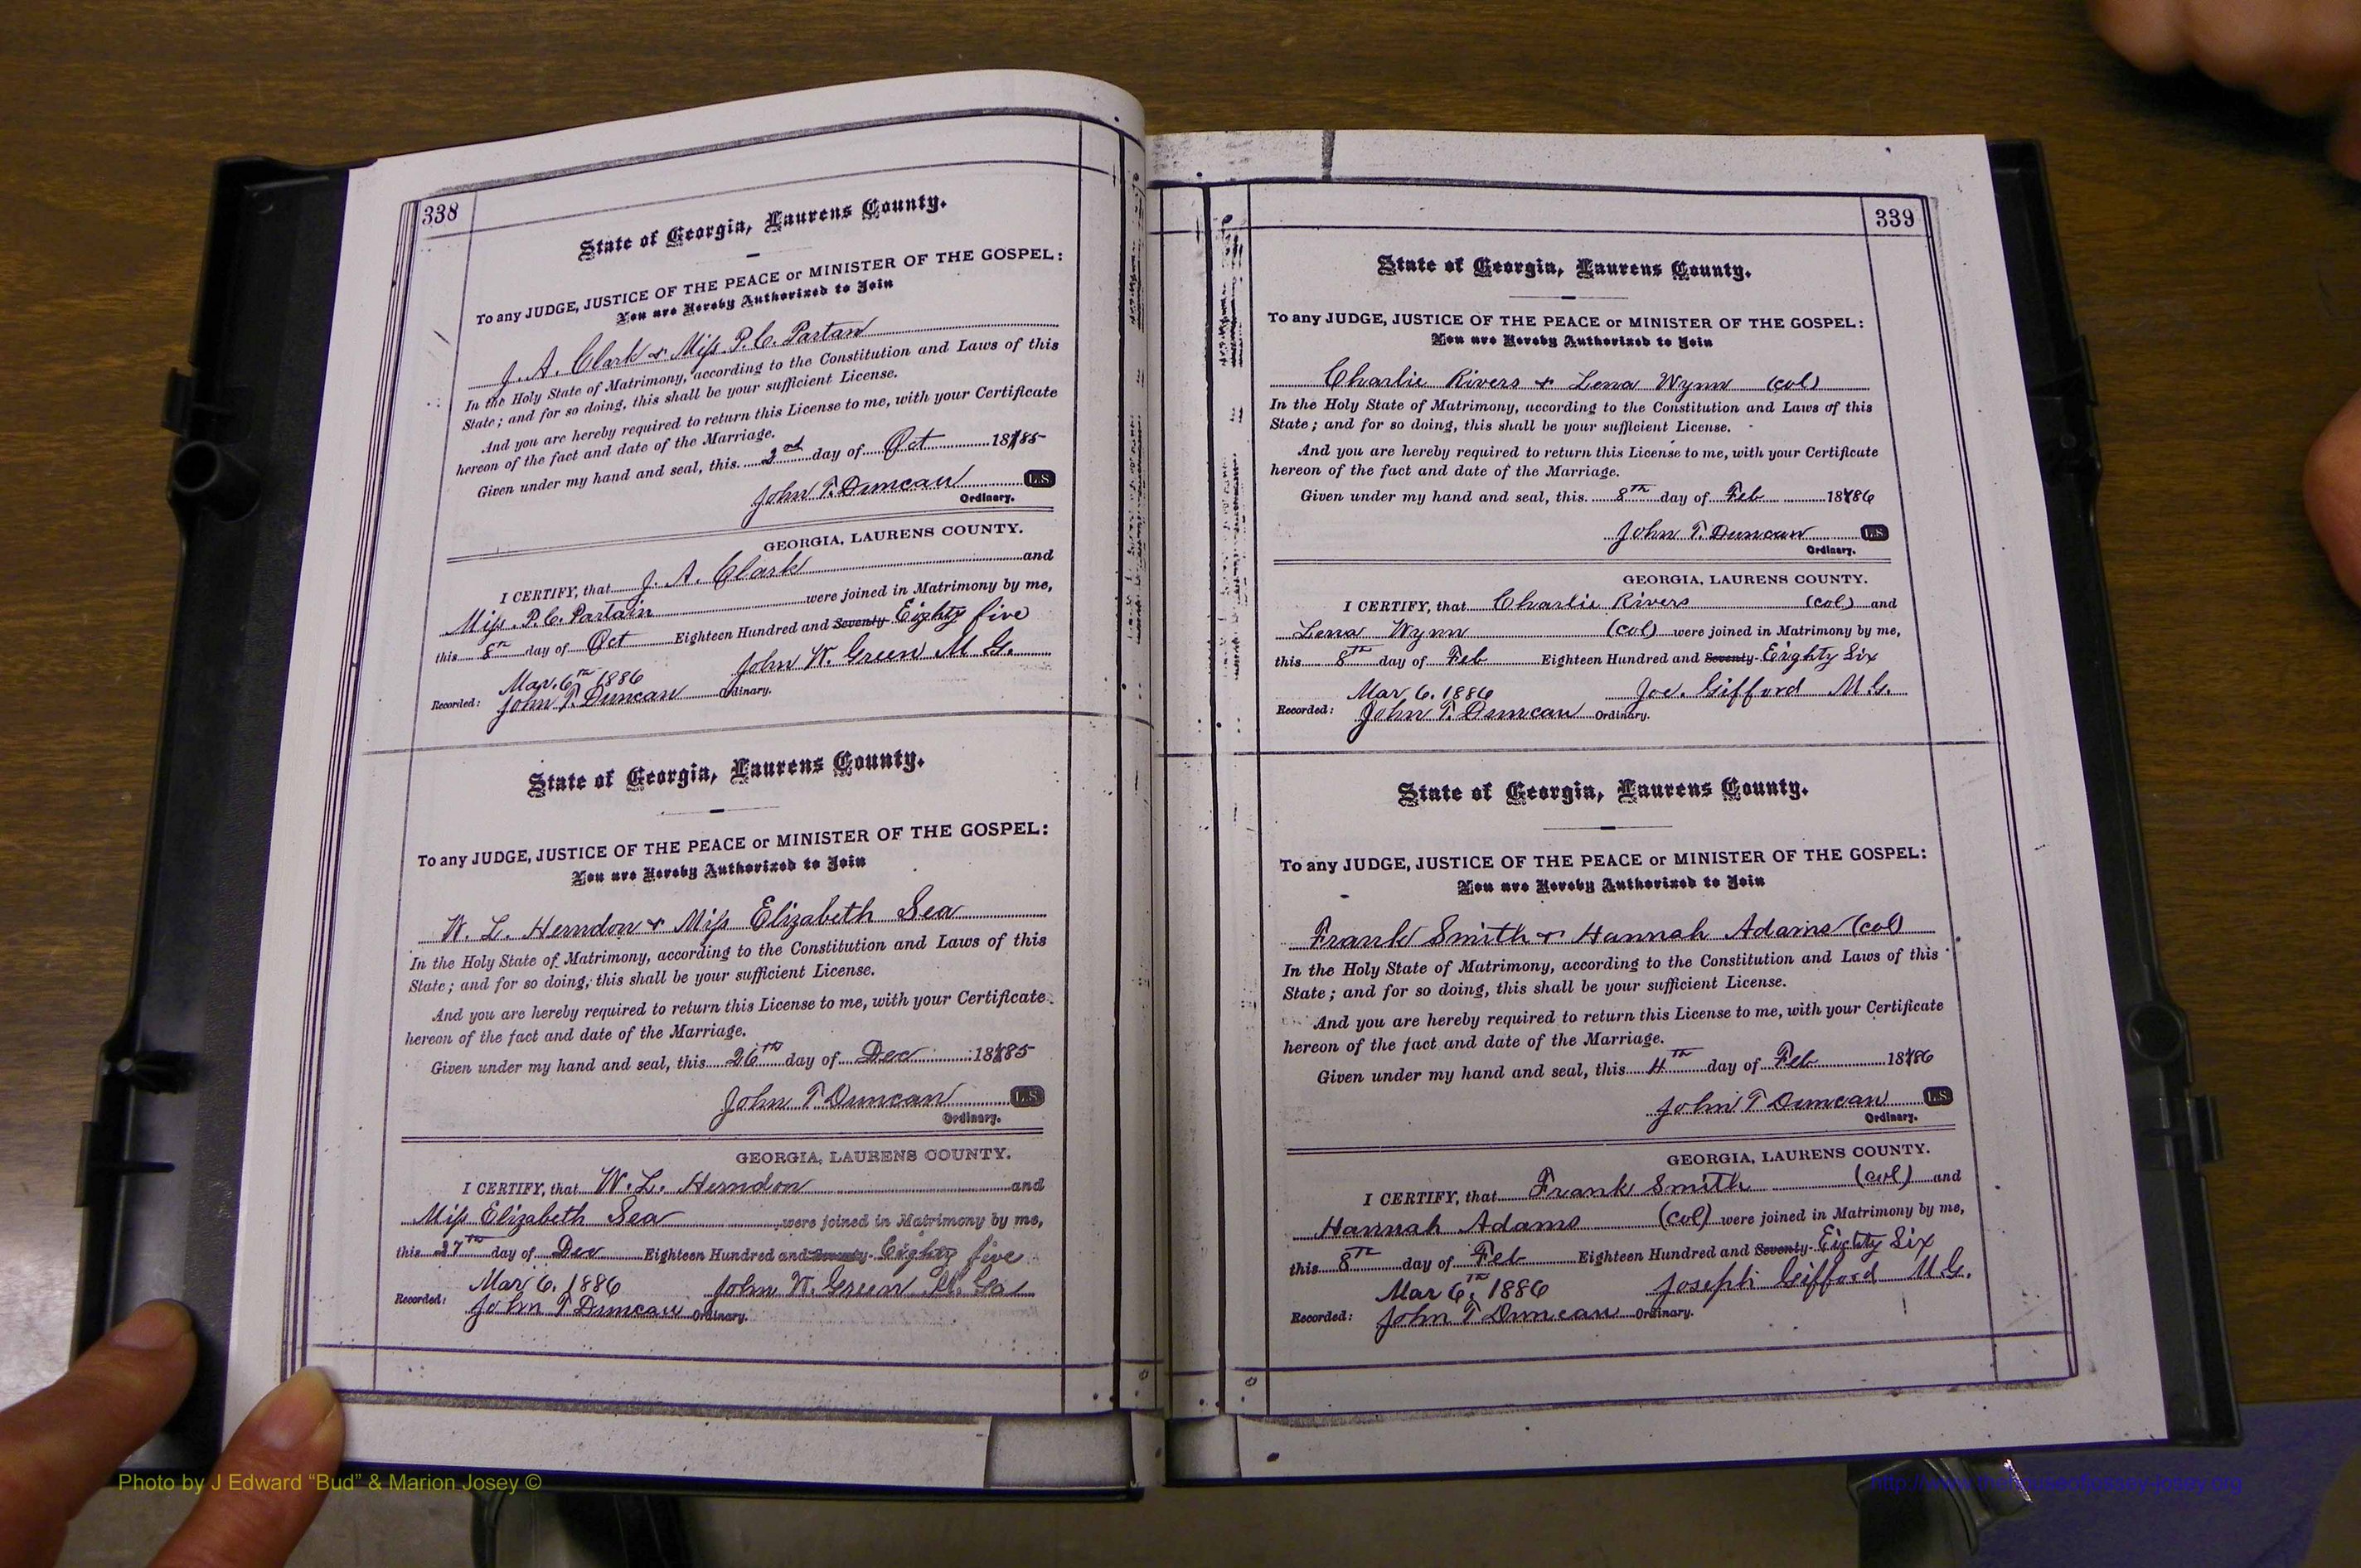 338
State of Georgia, Laurens County.
To any JUDGE, JUSTICE OF THE PEACE or MINISTER OF THE GOSPEL:
You are Hereby Authorized to Join
J. A. Clark & Miss P. C. Partan
In the Holy State of Matrimony, according to the Constitution and Laws of this
State; and for so doing, this shall be your sufficient License.
And you are hereby required to return this License to me, with your Certificate
hereon of the fact and date of the Marriage.
Given under my hand and seal, this 2nd day of Oct 1885
John T. Duncan L.S.
Ordinary.
GEORGIA, LAURENS COUNTY.
I CERTIFY, that J. A. Clark and
Miss P. C. Partain were joined in Matrimony by me,
this 8th day of Oct Eighteen Hundred and Seventy- Eighty five
Mar. 6th 1886 John W. Green M. G.
Recorded: John T. Duncan Ordinary.
State of Georgia, Laurens County.
To any JUDGE, JUSTICE OF THE PEACE or MINISTER OF THE GOSPEL:
You are Hereby Authorized to Join
W. L. Herndon & Miss Elizabeth Sea
In the Holy State of Matrimony, according to the Constitution and Laws of this
State; and for so doing, this shall be your sufficient License.
And you are hereby required to return this License to me, with your Certificate
hereon of the fact and date of the Marriage.
Given under my hand and seal, this 26th day of Dec 1885
John T Duncan L.S.
Ordinary.
GEORGIA, LAURENS COUNTY.
I CERTIFY, that W. L. Herndon and
Miss Elizabeth Sea were joined in Matrimony by me,
this 27th day of Dec Eighteen Hundred and Seventy- Eighty five
Mar 6, 1886 John W. Green M. G.
Recorded: John T Duncan Ordinary.
339
State of Georgia, Laurens County.
To any JUDGE, JUSTICE OF THE PEACE or MINISTER OF THE GOSPEL:
You are Hereby Authorized to Join
Charlie Rivers & Lena Wynn (col)
In the Holy State of Matrimony, according to the Constitution and Laws of this
State; and for so doing, this shall be your sufficient License.
And you are hereby required to return this License to me, with your Certificate
hereon of the fact and date of the Marriage.
Given under my hand and seal, this 8th day of Feb 1886
John T. Duncan L.S.
Ordinary.
GEORGIA, LAURENS COUNTY.
I CERTIFY, that Charlie Rivers (col) and
Lena Wynn (col) were joined in Matrimony by me,
this 8th day of Feb Eighteen Hundred and Seventy- Eighty Six
Mar 6. 1886 Joe. Gifford M. G.
Recorded: John T. Duncan Ordinary.
State of Georgia, Laurens County.
To any JUDGE, JUSTICE OF THE PEACE or MINISTER OF THE GOSPEL:
You are Hereby Authorized to Join
Frank Smith & Hannah Adams (col)
In the Holy State of Matrimony, according to the Constitution and Laws of this
State; and for so doing, this shall be your sufficient License.
And you are hereby required to return this License to me, with your Certificate
hereon of the fact and date of the Marriage.
Given under my hand and seal, this 4th day of Feb 1886
John T Duncan L.S.
Ordinary.
GEORGIA, LAURENS COUNTY.
I CERTIFY, that Frank Smith (col) and
Hannah Adams (col) were joined in Matrimony by me,
this 8th day of Feb Eighteen Hundred and Seventy- Eighty Six
Mar 6th, 1886 Joseph Gifford M. G.
Recorded: John T Duncan Ordinary.
Photo by J Edward “Bud” & Marion Josey ©